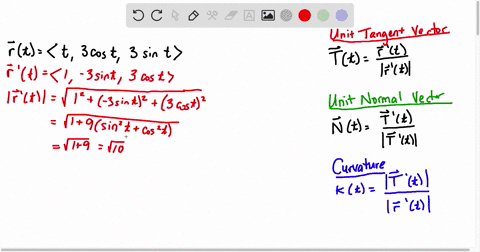 r⃗(t) = < t, 3 cos t, 3 sin t >
r⃗'(t) = < 1, -3 sin t, 3 cos t >
|r⃗'(t)| = √(1² + (-3 sin t)² + (3 cos t)²)
= √(1 + 9(sin² t + cos² t))
= √(1+9) = √10
Unit Tangent Vector
T⃗(t) = r⃗'(t) / |r⃗'(t)|
Unit Normal Vector
N⃗(t) = T⃗'(t) / |T⃗'(t)|
Curvature
κ(t) = |T⃗'(t)| / |r⃗'(t)|